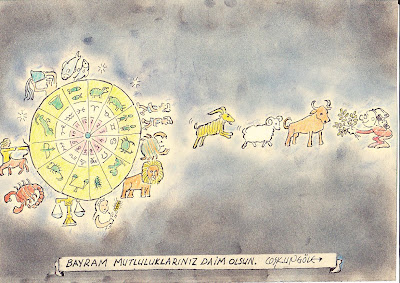 BAYRAM MUTLULUKLARINIZ DAİM OLSUN. COŞKUNGÖLE